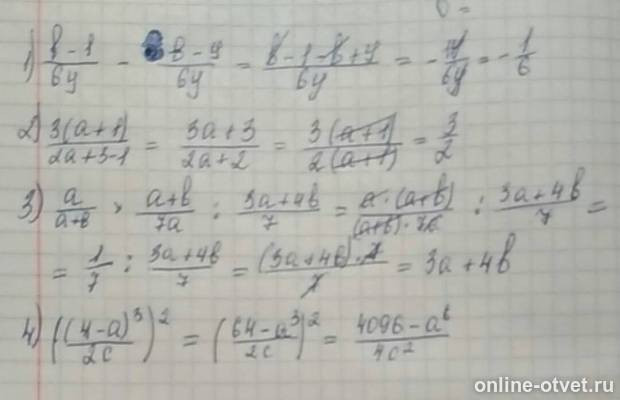 1) (в-1)/6y - (в-y)/6y = (в-1-в+y)/6y = -y/6y = -1/6
2) 3(a+1)/(2a+3-1) = (3a+3)/(2a+2) = 3(a+1)/2(a+1) = 3/2
3) a/(a+в) · (a+в)/7a : (3a+4в)/7 = a·(a+в)/(a+в)·7a : (3a+4в)/7 =
= 1/7 : (3a+4в)/7 = (3a+4в)·7/7 = 3a+4в
4) ((4-a)³/2c)² = ((64-a³)/2c)² = (4096-a⁶)/4c²
online-otvet.ru